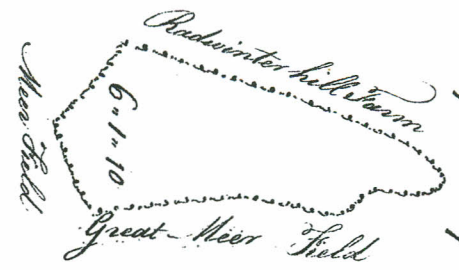 Radwinter hill Farm
Meer Field
6=1=10
Great-Meer Field